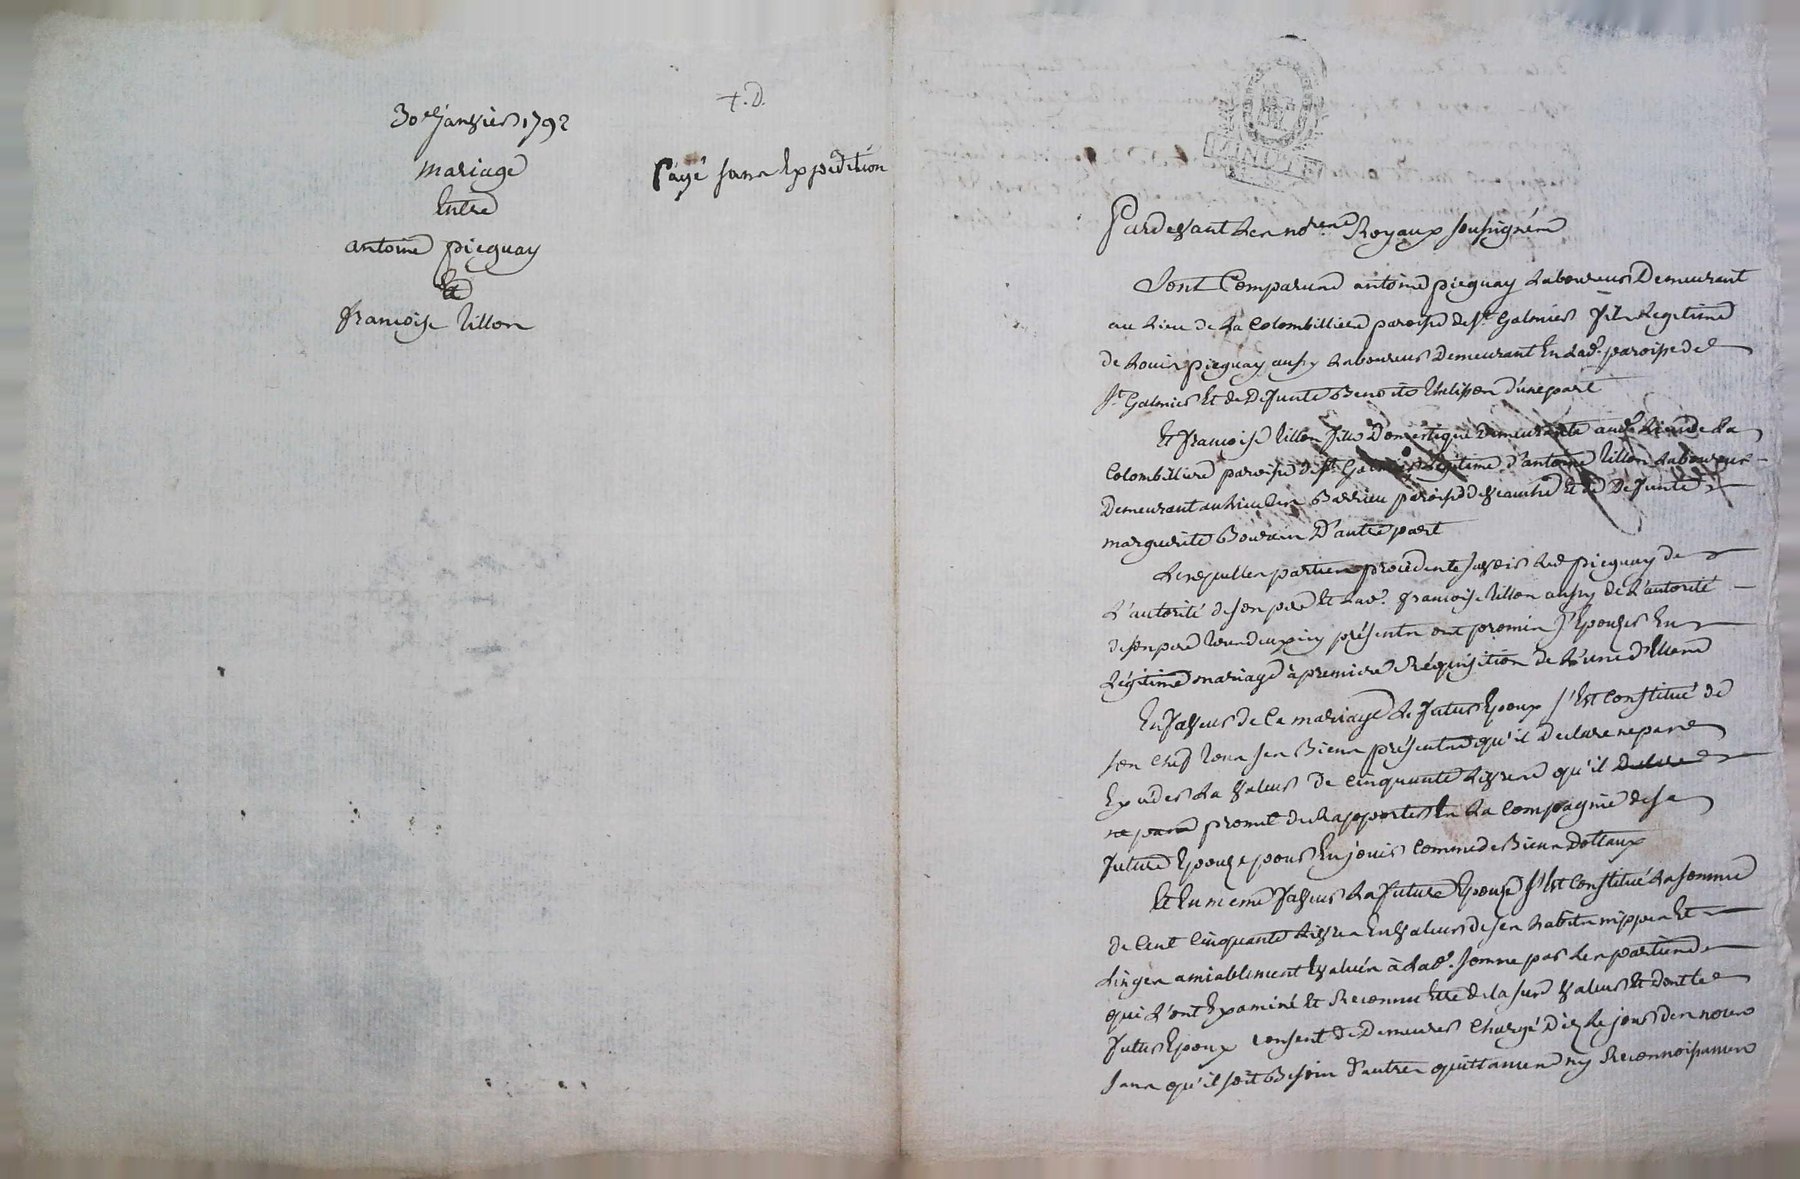 30e Janvier 1792
mariage
Entre
antoine picquay
Et
françoise Villon
+.D.
Payé sans Expédition
MINUTE
Pardevant Les nores Royaux soussignés
Sont Comparus antoine picquay Laboureur Demeurant
au Lieu de La Colombilliere paroisse de St. Galmier fils Legitime
de Louis picquay aussy Laboureur Demeurant En Lad. paroisse de
St. Galmier Et de Defunte Benoite d'une part
Et françoise Villon fille Domestique Demeurante aud. Lieu de La
Colombilliere paroisse de St. Galmier Legitime d'antoine Villon Laboureur
Demeurant au Lieu paroisse de veauche Et de Defunte
marguerite D'autre part
Lesquelles parties procedente savoir Led. picquay de
L'autorité de son pere Et Lad. françoise Villon aussy de L'autorité
de son pere tous deux icy présents ont promis s'Epouser En
Légitime mariage à premiere Réquisition de L'une d'Elles
En faveur de Ce mariage Le futur Epoux s'Est Constitué de
son Chef tous ses Biens présents qu'il Declare ne pas
Exceder La valeur De Cinquante Livres qu'il Declare
ne pas promet de Rapporter En La Compagnie de sa
future Epouse pour En jouir Comme de Biens Dottaux
Et En meme faveur La future Epouse s'Est Constitué La somme
de Cent Cinquante Livres En valeur de ses habits nippes Et
Linges amiablement Evalués à Lad. somme par Les parties
qui L'ont Examiné Et Reconnu Etre de la sure valeur Et dont Le
futur Epoux Consent De Demeurer Chargé Dez Le jour des noces
sans qu'il soit Besoin D'autres quittances ny Reconnoissances